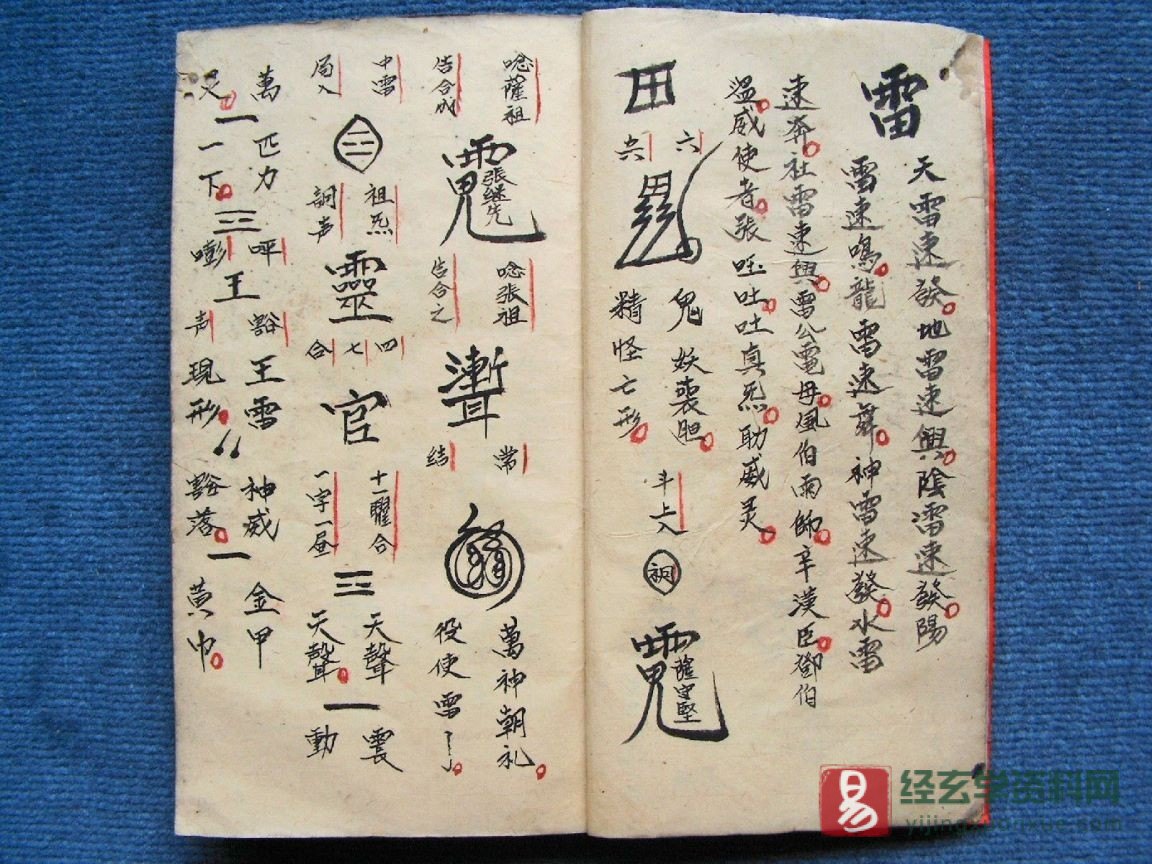 雷
天雷速發地雷速興陰㵢速發陽
雷速鳴龍雷速舞神雷速發水雷
速奔社雷速興雷公電母風伯雨師辛漢臣鄧伯
溫威使者張吐吐真炁助威灵
田
六
鬼妖喪胆
精怪亡形
斗上入
薩守堅
唸薩祖
告合成
張継先
唸張祖
告合之
聻
常
結
萬神朝礼
役使雷了
中雷
局入
三
祖炁
詞声
靈
四
七
合
官
十一曜合
一字一届
三
天聲
天聲
一
震
動
萬
尺
一
匹力
一下
三
呯
嘭
王
豁
声
王雷
現形
神威
豁落
一
金甲
黃巾
易
经玄学资料网
yijingxuanxue.com